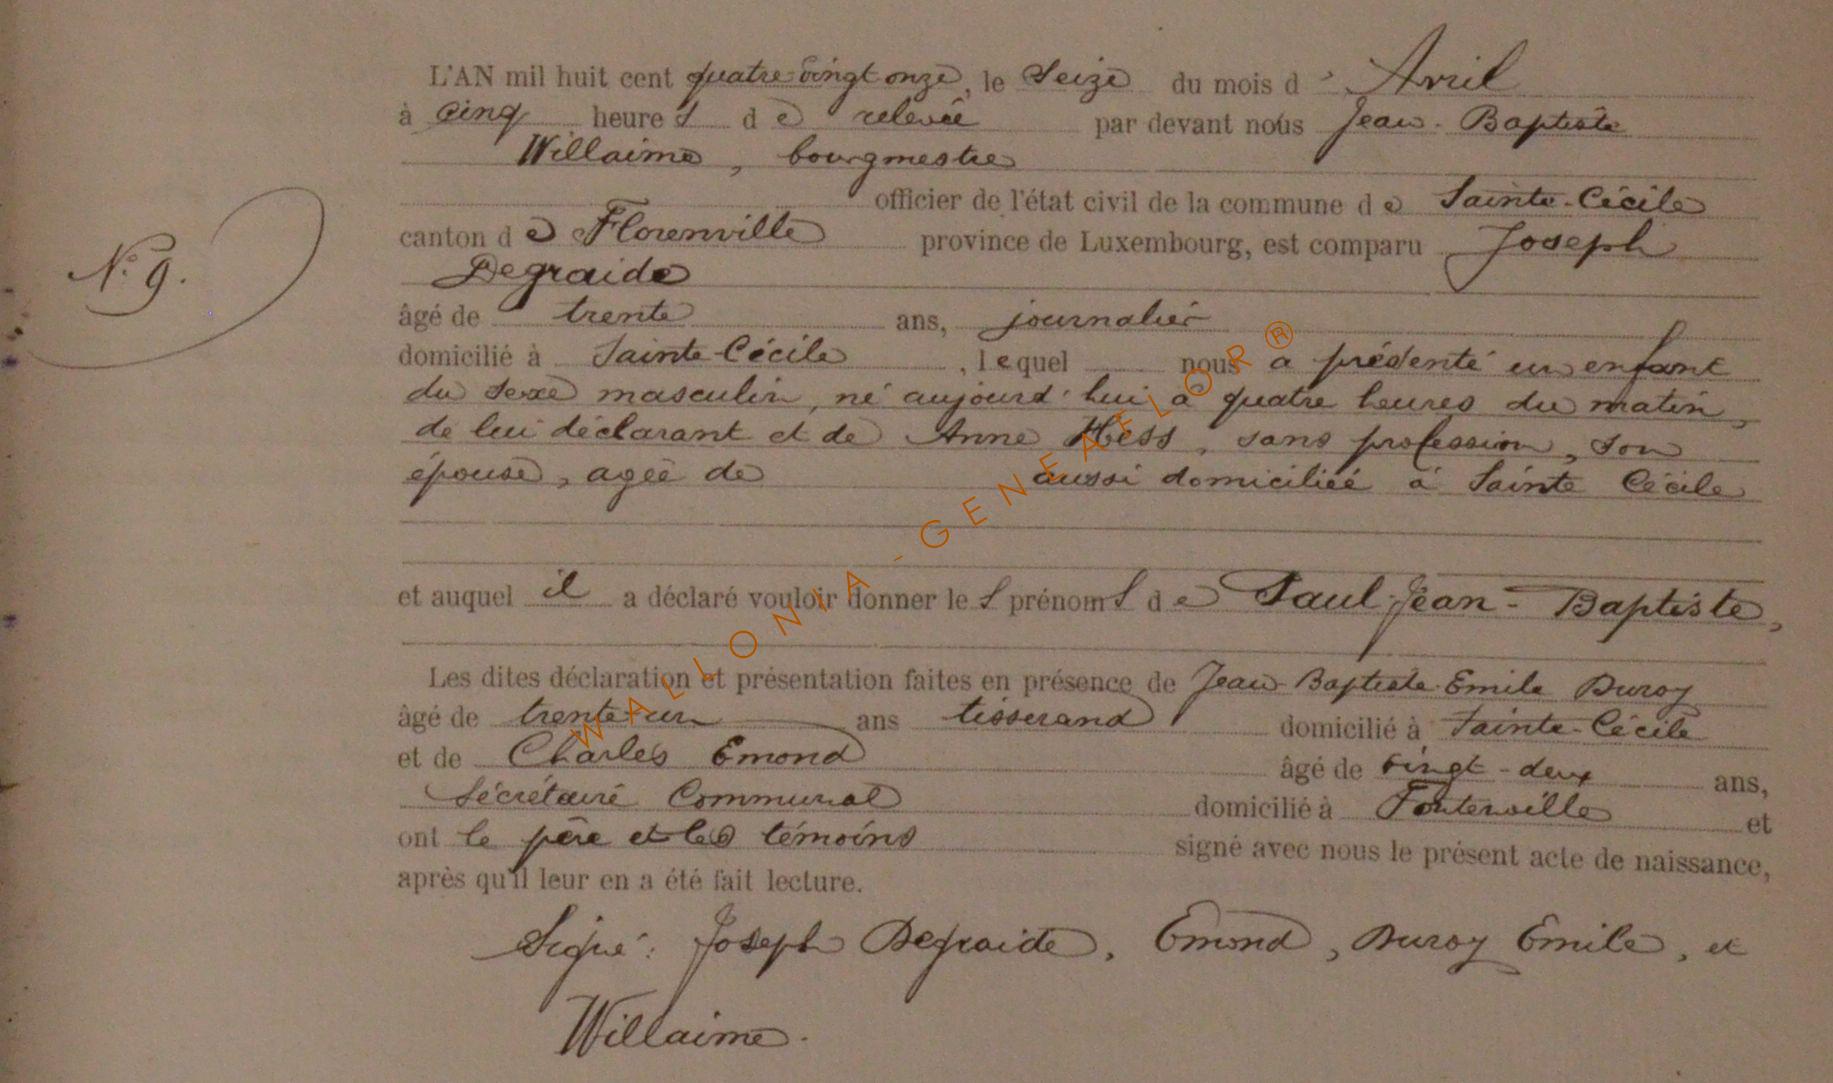 L'AN mil huit cent quatre-vingt onze, le Seize du mois d' Avril
à cinq heures de relevée par devant nous Jean-Baptiste
Willaime, bourgmestre
officier de l'état civil de la commune de Sainte-Cécile
canton de Florenville province de Luxembourg, est comparu Joseph
Degraide
N° 9.
âgé de trente ans, journalier
domicilié à Sainte-Cécile, lequel nous a présenté un enfant
du sexe masculin, né aujourd'hui à quatre heures du matin,
de lui déclarant et de Anne Hess, sans profession, son
épouse, agée de aussi domiciliée à Sainte Cécile
et auquel il a déclaré vouloir donner les prénoms de Paul-Jean-Baptiste,
Les dites déclaration et présentation faites en présence de Jean-Baptiste-Emile Duroy
âgé de trente-un ans tisserand domicilié à Sainte-Cécile
et de Charles Emond âgé de vingt-deux ans,
Sécrétaire Communal domicilié à Fontenoille et
ont le père et les témoins signé avec nous le présent acte de naissance,
après qu'il leur en a été fait lecture.
Signé: Joseph Degraide, Emond, Duroy Emile, et
Willaime.
WALLONIA-GENEAFLOR ®